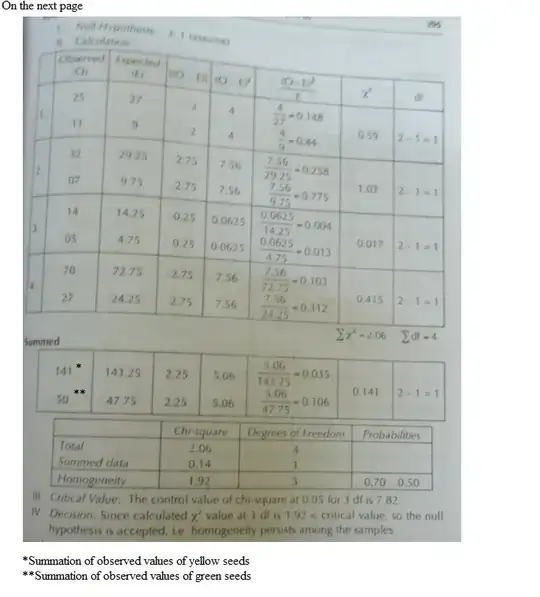 On the next page
195
I Null Hypothesis 3:1
II Calculation
Observed Expected
(O) (E) |(O – E)| (O – E)² (O – E)² / E χ² df
1 25 27 2 4 4/27 = 0.148
11 9 2 4 4/9 = 0.44 0.59 2 – 1 = 1
2 32 29.25 2.75 7.56 7.56/29.25 = 0.258
07 9.75 2.75 7.56 7.56/9.75 = 0.775 1.03 2 – 1 = 1
3 14 14.25 0.25 0.0625 0.0625/14.25 = 0.004
05 4.75 0.25 0.0625 0.0625/4.75 = 0.013 0.017 2 – 1 = 1
4 70 72.75 2.75 7.56 7.56/72.75 = 0.103
27 24.25 2.75 7.56 7.56/24.25 = 0.312 0.415 2 – 1 = 1
∑χ² = 2.06 ∑df = 4
Summed
141 * 143.25 2.25 5.06 5.06/143.25 = 0.035
50 ** 47.75 2.25 5.06 5.06/47.75 = 0.106 0.141 2 – 1 = 1
Chi-square Degrees of Freedom Probabilities
Total 2.06 4
Summed data 0.14 1
Homogeneity 1.92 3 0.70 0.50
III Critical Value: The control value of chi-square at 0.05 for 3 df is 7.82
IV Decision: Since calculated χ² value at 3 df is 1.92 < critical value, so the null
hypothesis is accepted, i.e. homogeneity persists among the samples
*Summation of observed values of yellow seeds
**Summation of observed values of green seeds